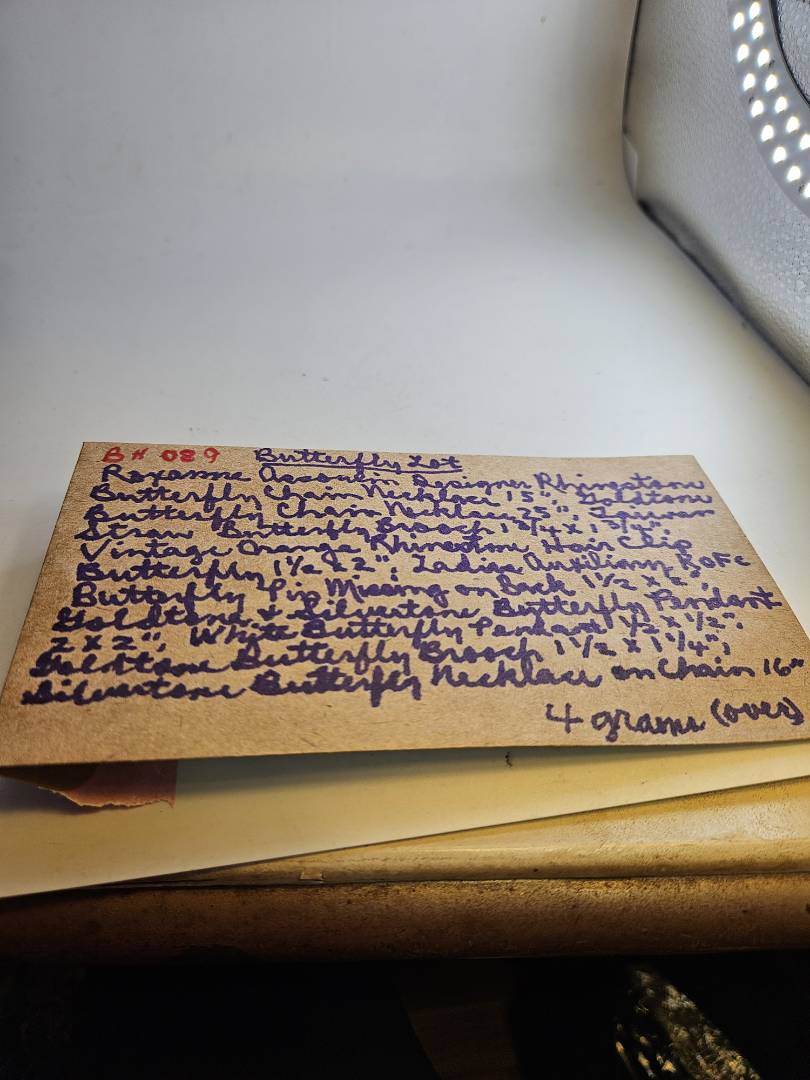 B# 089 Butterfly Lot
Roxanne Assoulin Designer Rhinestone
Butterfly Chain Necklace 15", Goldtone
Butterfly Chain Necklace 25", Taiwan
Straw Butterfly Brooch 1 3/4 x 1 3/4"
Vintage Orange Rhinestone Hair Clip
Butterfly 1 1/2 x 2", Ladies Auxiliary K of C
Butterfly Pin Missing on Back 1 1/2 x 2",
Goldtone + Silvertone Butterfly Pendant
2 x 2", White Butterfly Pendant 1/2 x 1/2",
Goldtone Butterfly Brooch 1 1/2 x 1 1/4",
Silvertone Butterfly Necklace on Chain 16"
4 grams (over)